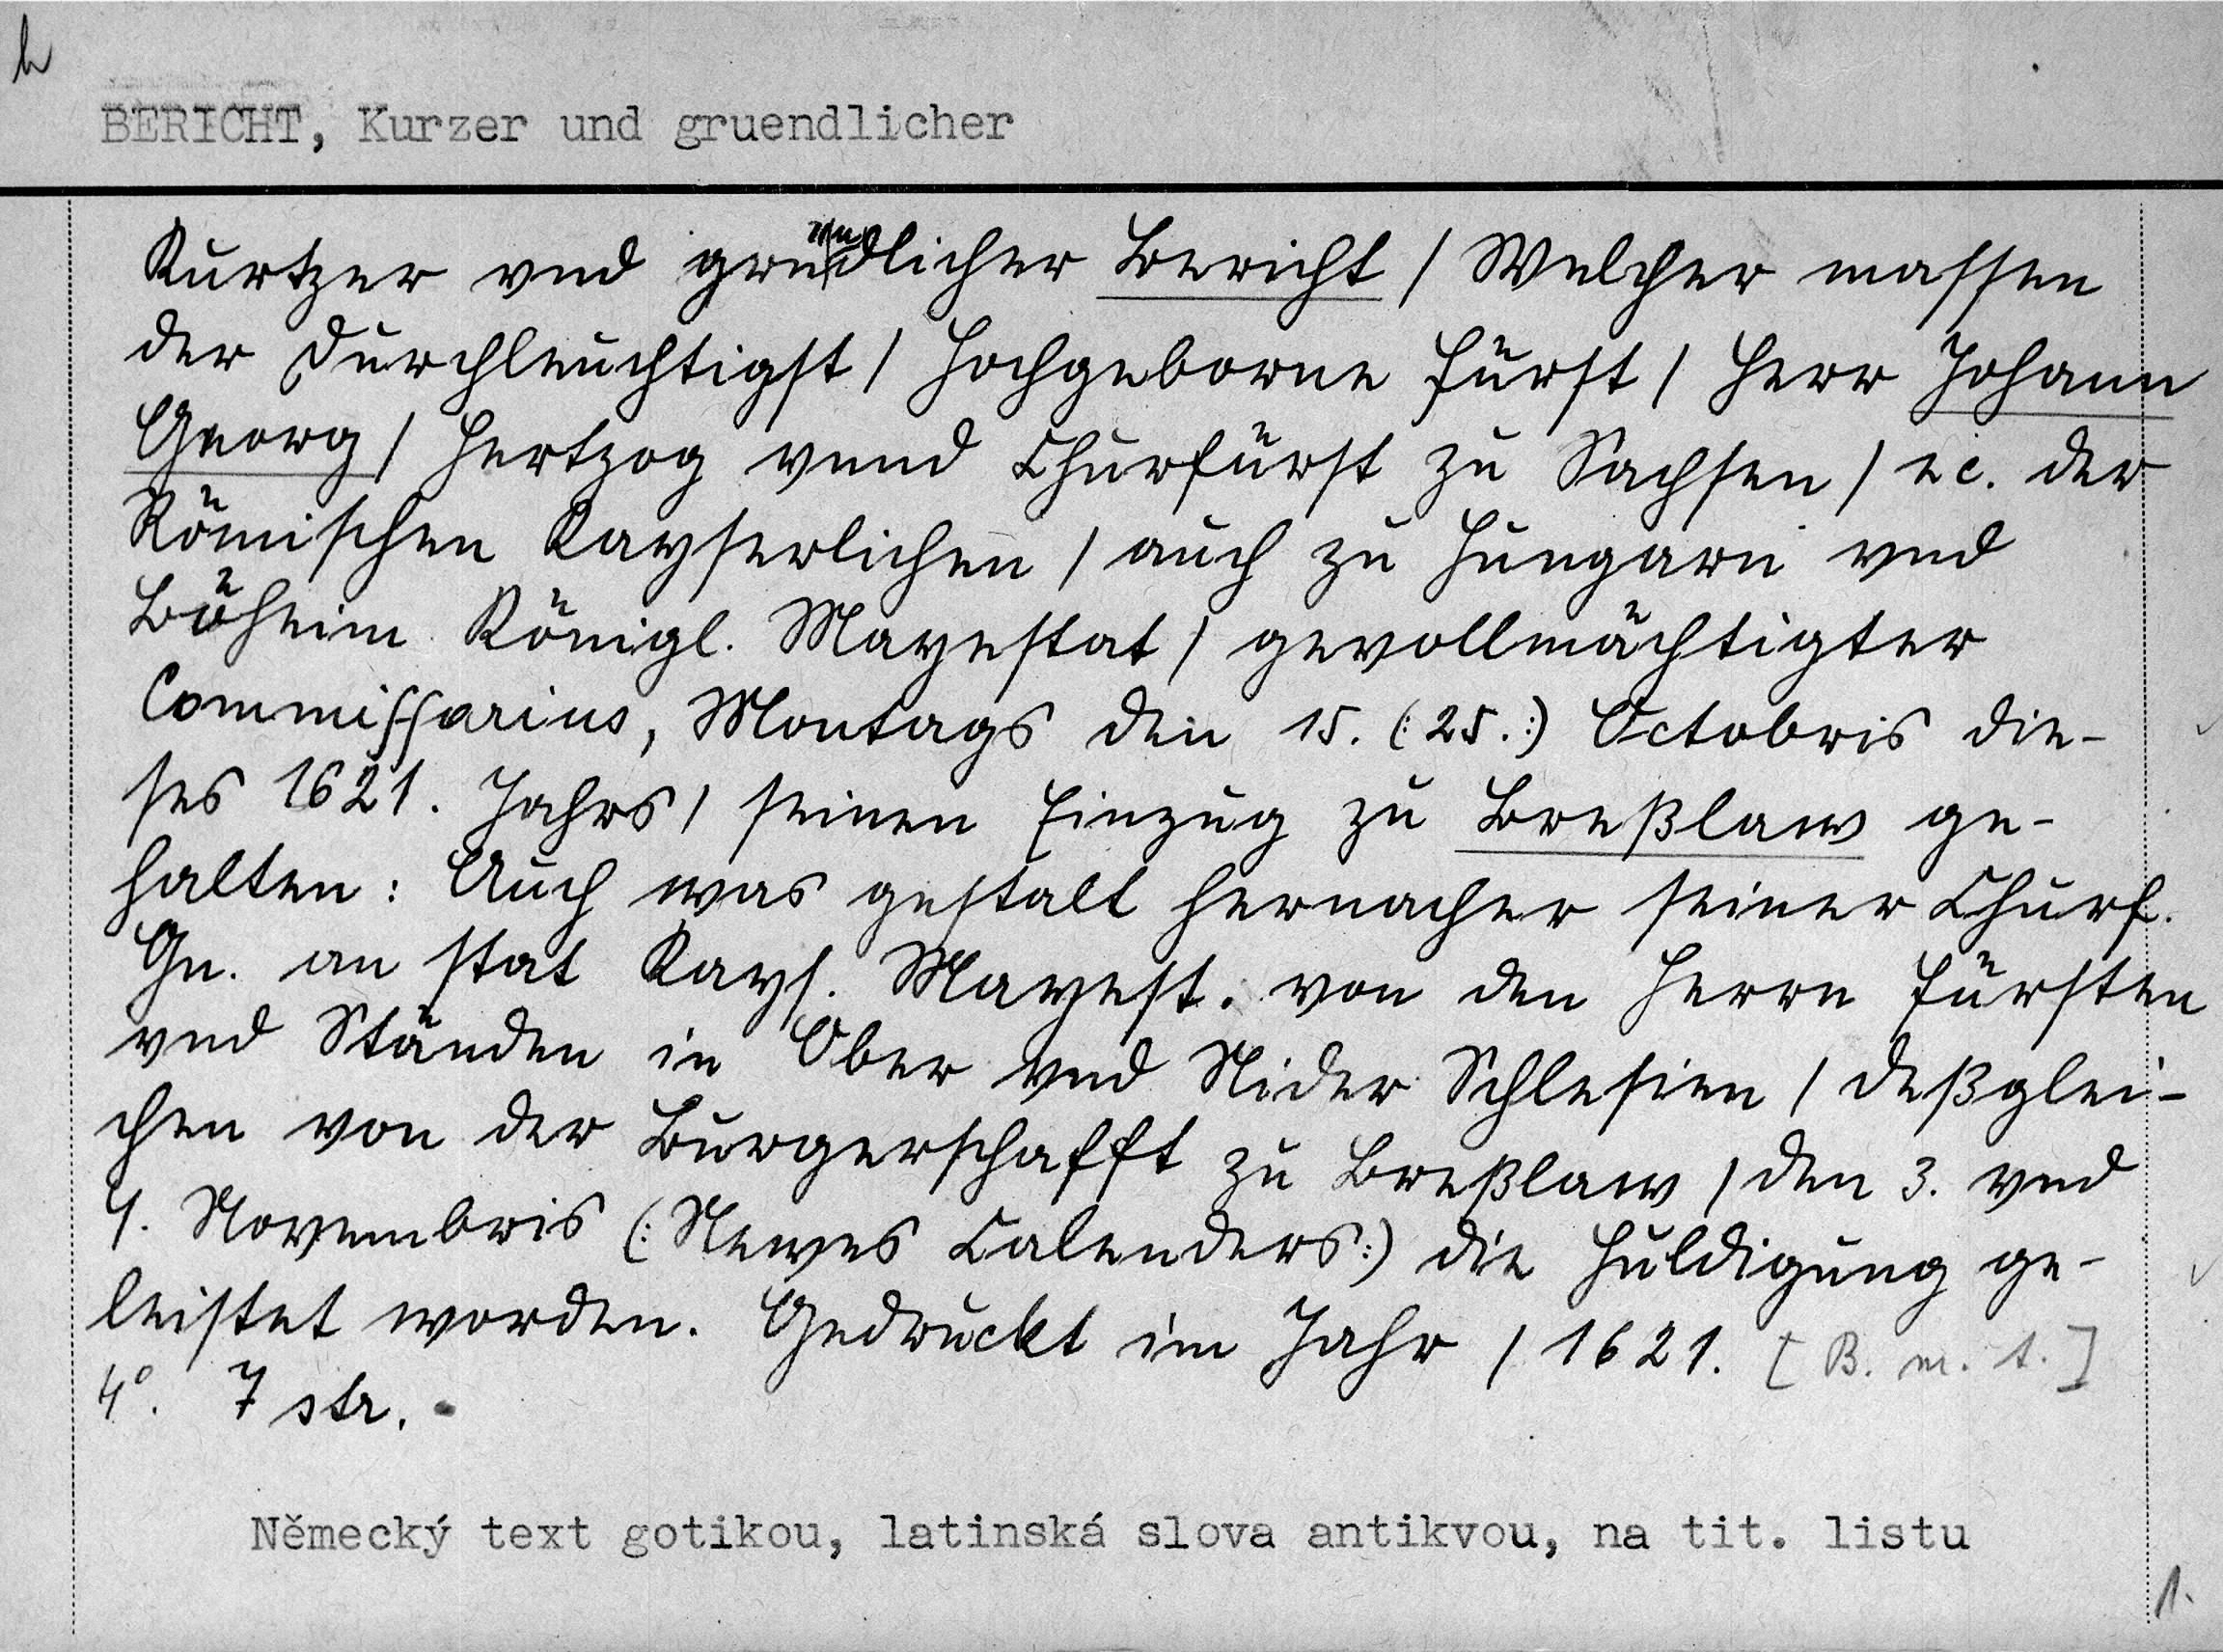 h
BERICHT, Kurzer und gruendlicher
Kurtzer vnd gründlicher Bericht / Welcher massen
der Durchleuchtigst / Hochgeborne Fürst / Herr Johann
Georg / Hertzog vnnd Churfürst zu Sachsen / ꝛc. der
Römischen Kayserlichen / auch zu Hungarn vnd
Böheim Königl. Mayestat / gevollmächtigter
Commissarius, Montags den 15. (:25.:) Octobris die-
ses 1621. Jahrs / seinen Einzug zu Breßlaw ge-
halten: Auch was gestalt hernacher seiner Churf.
Gn. an stat Kays. Mayest. von den Herrn Fürsten
vnd Ständen in Ober vnd Nider Schlesien / deßglei-
chen von der Burgerschafft zu Breßlaw / den 3. vnd
4. Novembris (:Newes Calenders:) die Huldigung ge-
leistet worden. Gedruckt im Jahr / 1621. [B. m. t.]
4°. 7 str.
Německý text gotikou, latinská slova antikvou, na tit. listu
1.